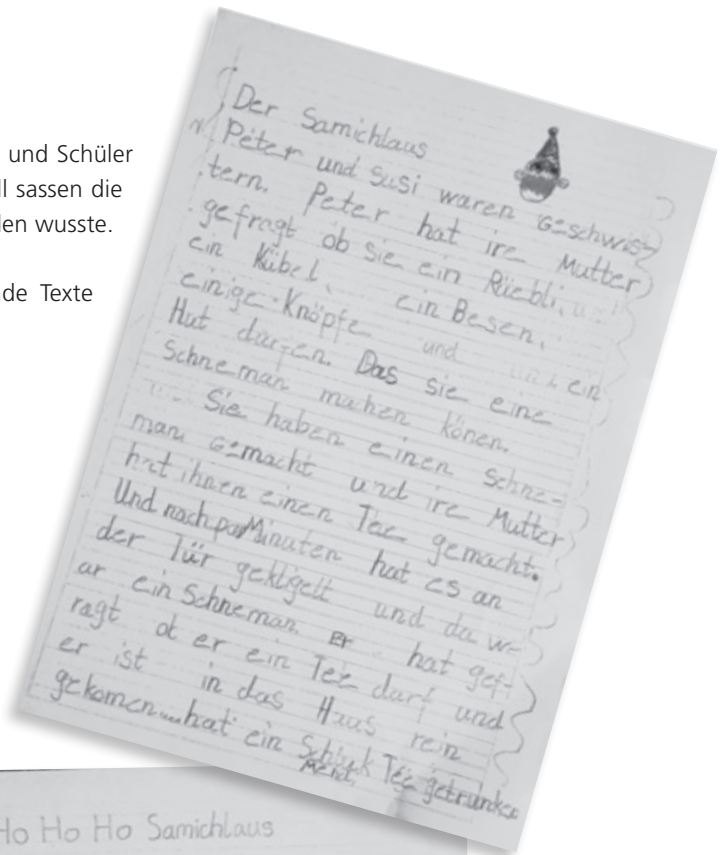 und Schüler
ll sassen die
den wusste.
de Texte
Der Samichlaus
Peter und Susi waren Geschwis-
tern. Peter hat ire Mutter
gefragt ob sie ein Rüebli,
ein Kübel, ein Besen,
einige Knöpfe und ein
Hut dürfen. Das sie eine
Schneman machen könen.
Sie haben einen Schne-
man gemacht und ire Mutter
hat ihnen einen Tee gemacht.
Und nach par Minuten hat es an
der Tür gekligelt und da w-
ar ein Schneman. Er hat gef-
ragt ob er ein Tee darf und
er ist in das Haus rein
gekomen hat ein Schluk Tee getrunken
Ho Ho Ho Samichlaus